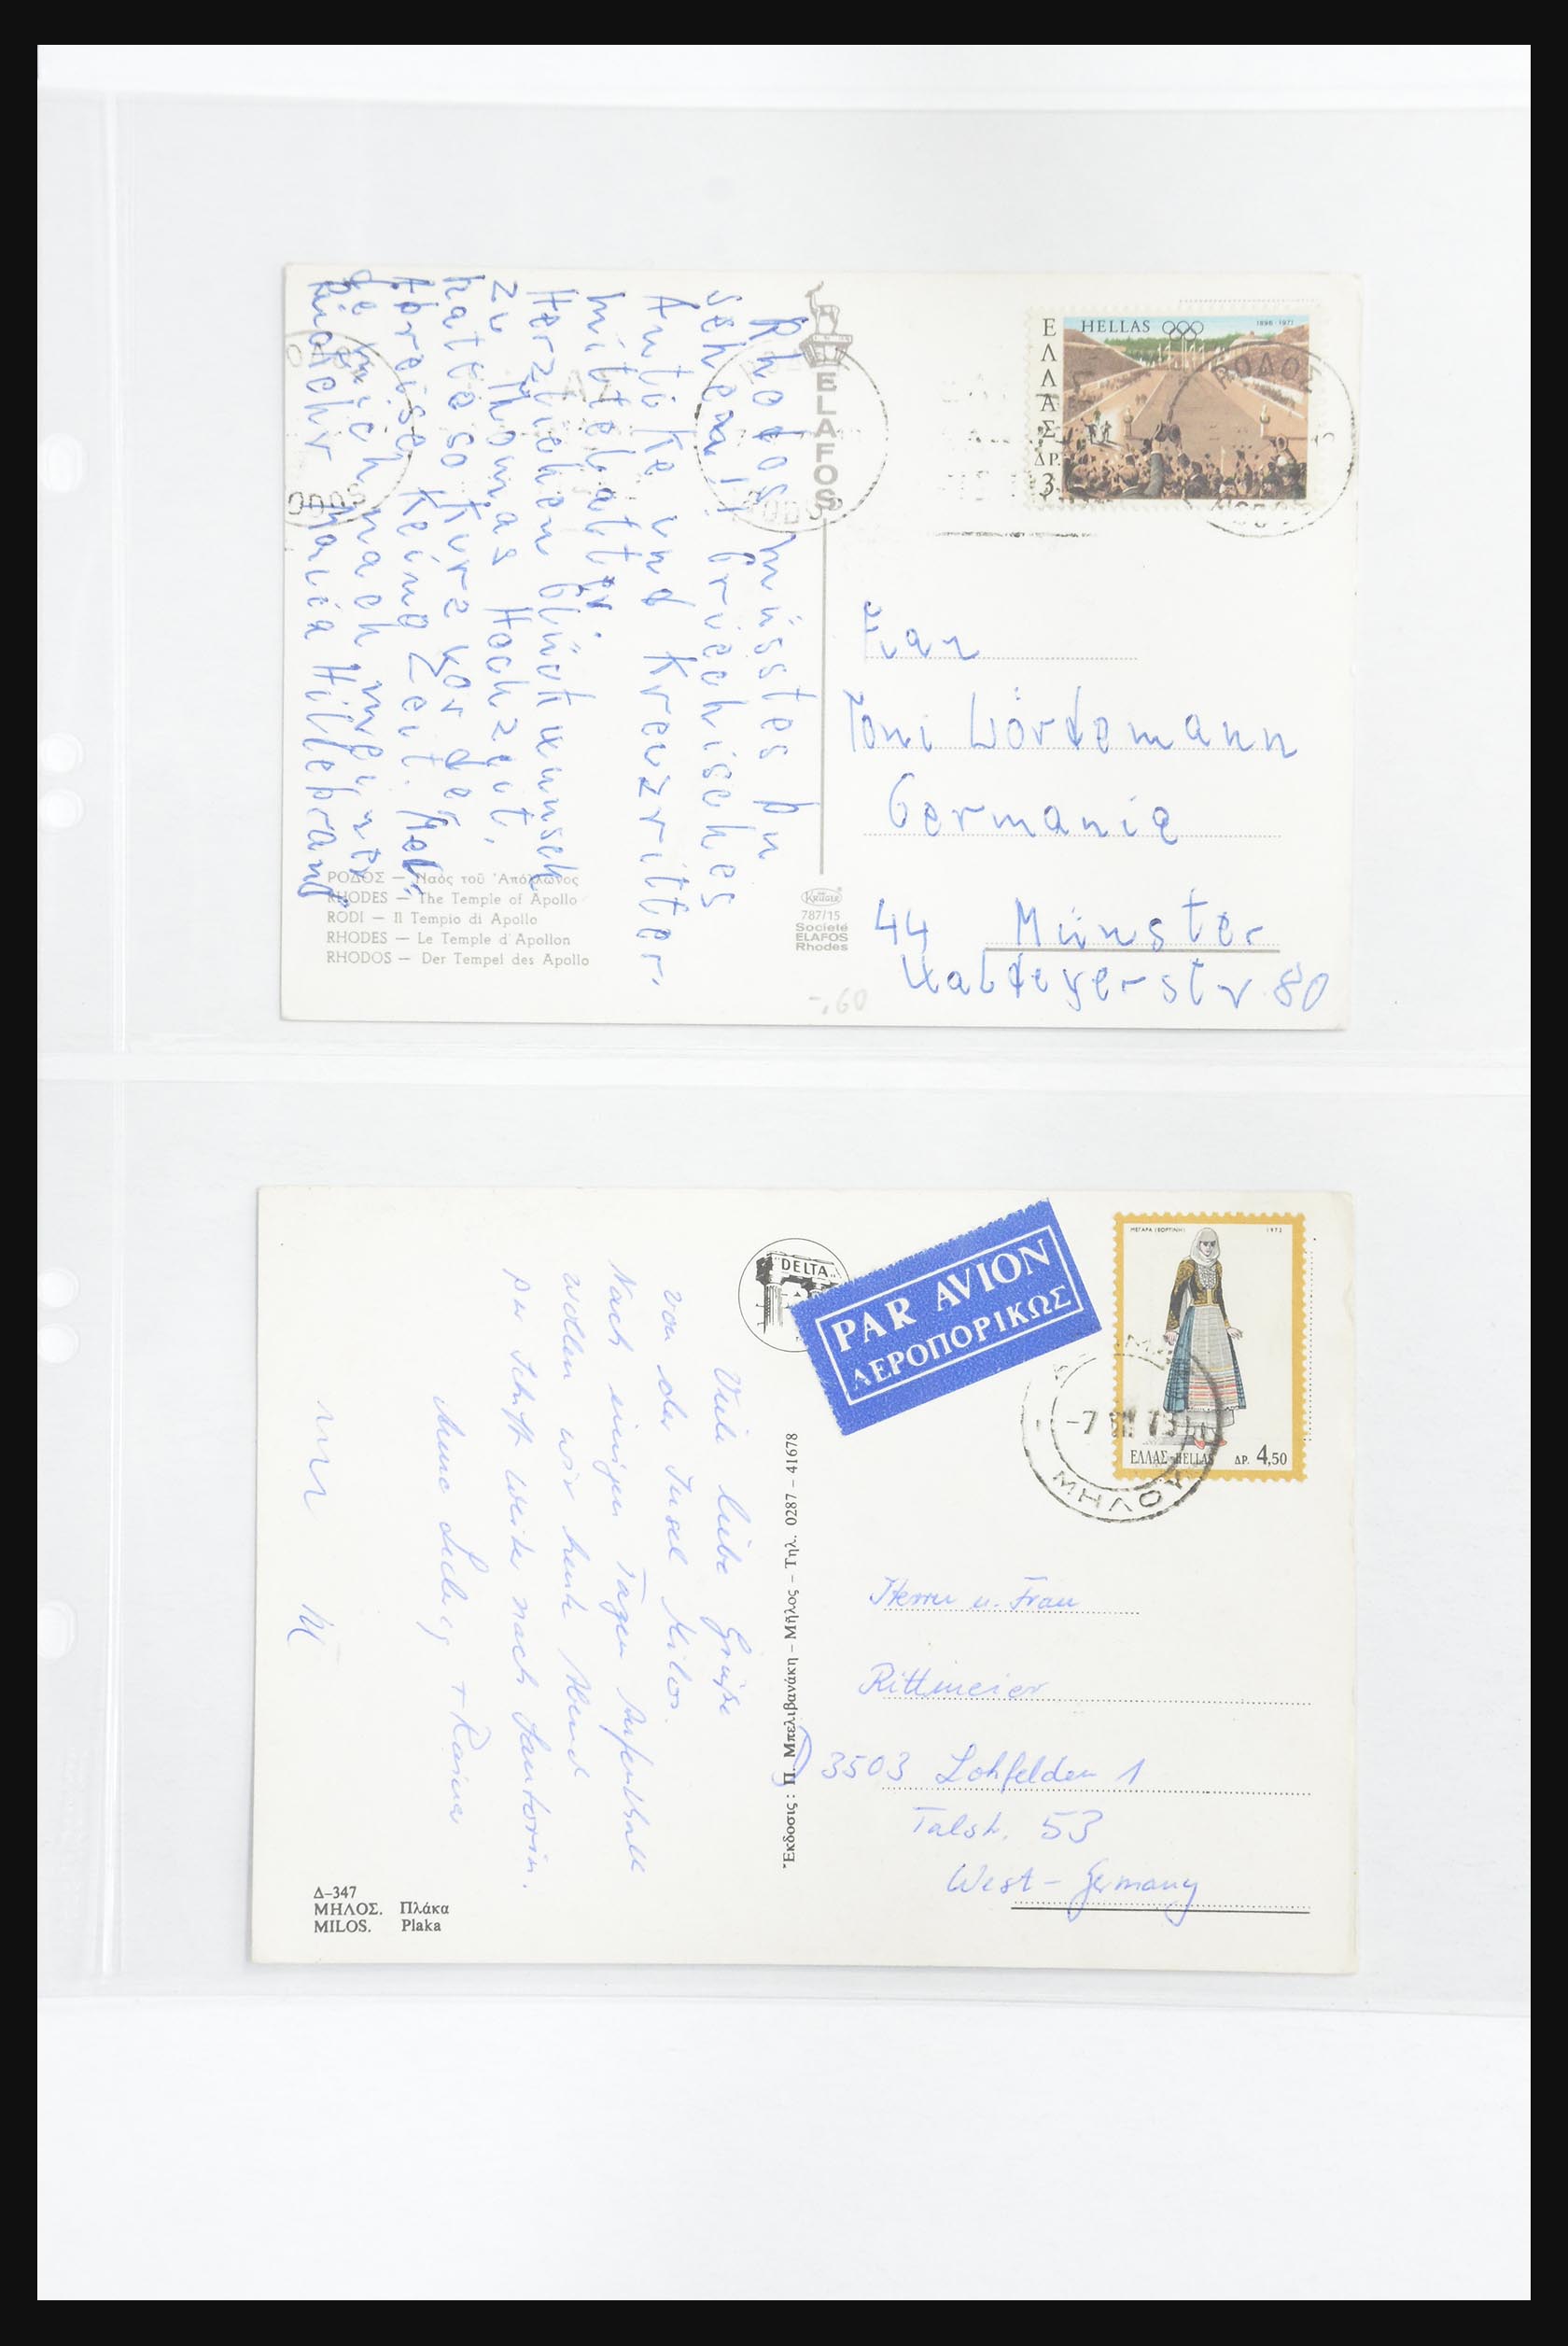 Rhodos müsstes Du
sehen!! Griechisches
Antike und Kreuzritter.
Mittelalter.
Herzlichen Glückwunsch
zu Thomas Hochzeit,
hatte so kurz vor der
Abreise keine Zeit.
ge mich nach meiner
Rückehr Maria Hillebrand
ELAFOS
ΡΟΔΟΣ — Ναός τοῦ Ἀπόλλωνος
RHODES — The Temple of Apollo
RODI — Il Tempio di Apollo
RHODES — Le Temple d'Apollon
RHODOS — Der Tempel des Apollo
KRÜGER
787/15
Société
ELAFOS
Rhodes
-.60
ΕΛΛΑΣ
HELLAS
1896-1971
ΔΡ.
3
ΡΟΔΟΣ
Frau
Toni Wördemann
Germania
44 Münster
Waldeyerstr 80
DELTA
PAR AVION
ΑΕΡΟΠΟΡΙΚΩΣ
ΜΕΓΑΡΑ (ΕΟΡΤΙΝΗ) 1972
ΕΛΛΑΣ-HELLAS ΔΡ. 4,50
-7 73
Viele liebe Grüße
von der Insel Milos.
Nach einigen Tagen Aufenthalt
wollen wir heute Abend
per Schiff weiter nach Santorin.
+ Rainer
Ἔκδοσις: Π. Μπελιβανάκη – Μῆλος – Τηλ. 0287 – 41678
Herrn u. Frau
Rittmeier
3503 Lohfelden 1
Talstr. 53
West-Germany
Δ-347
ΜΗΛΟΣ. Πλάκα
MILOS. Plaka